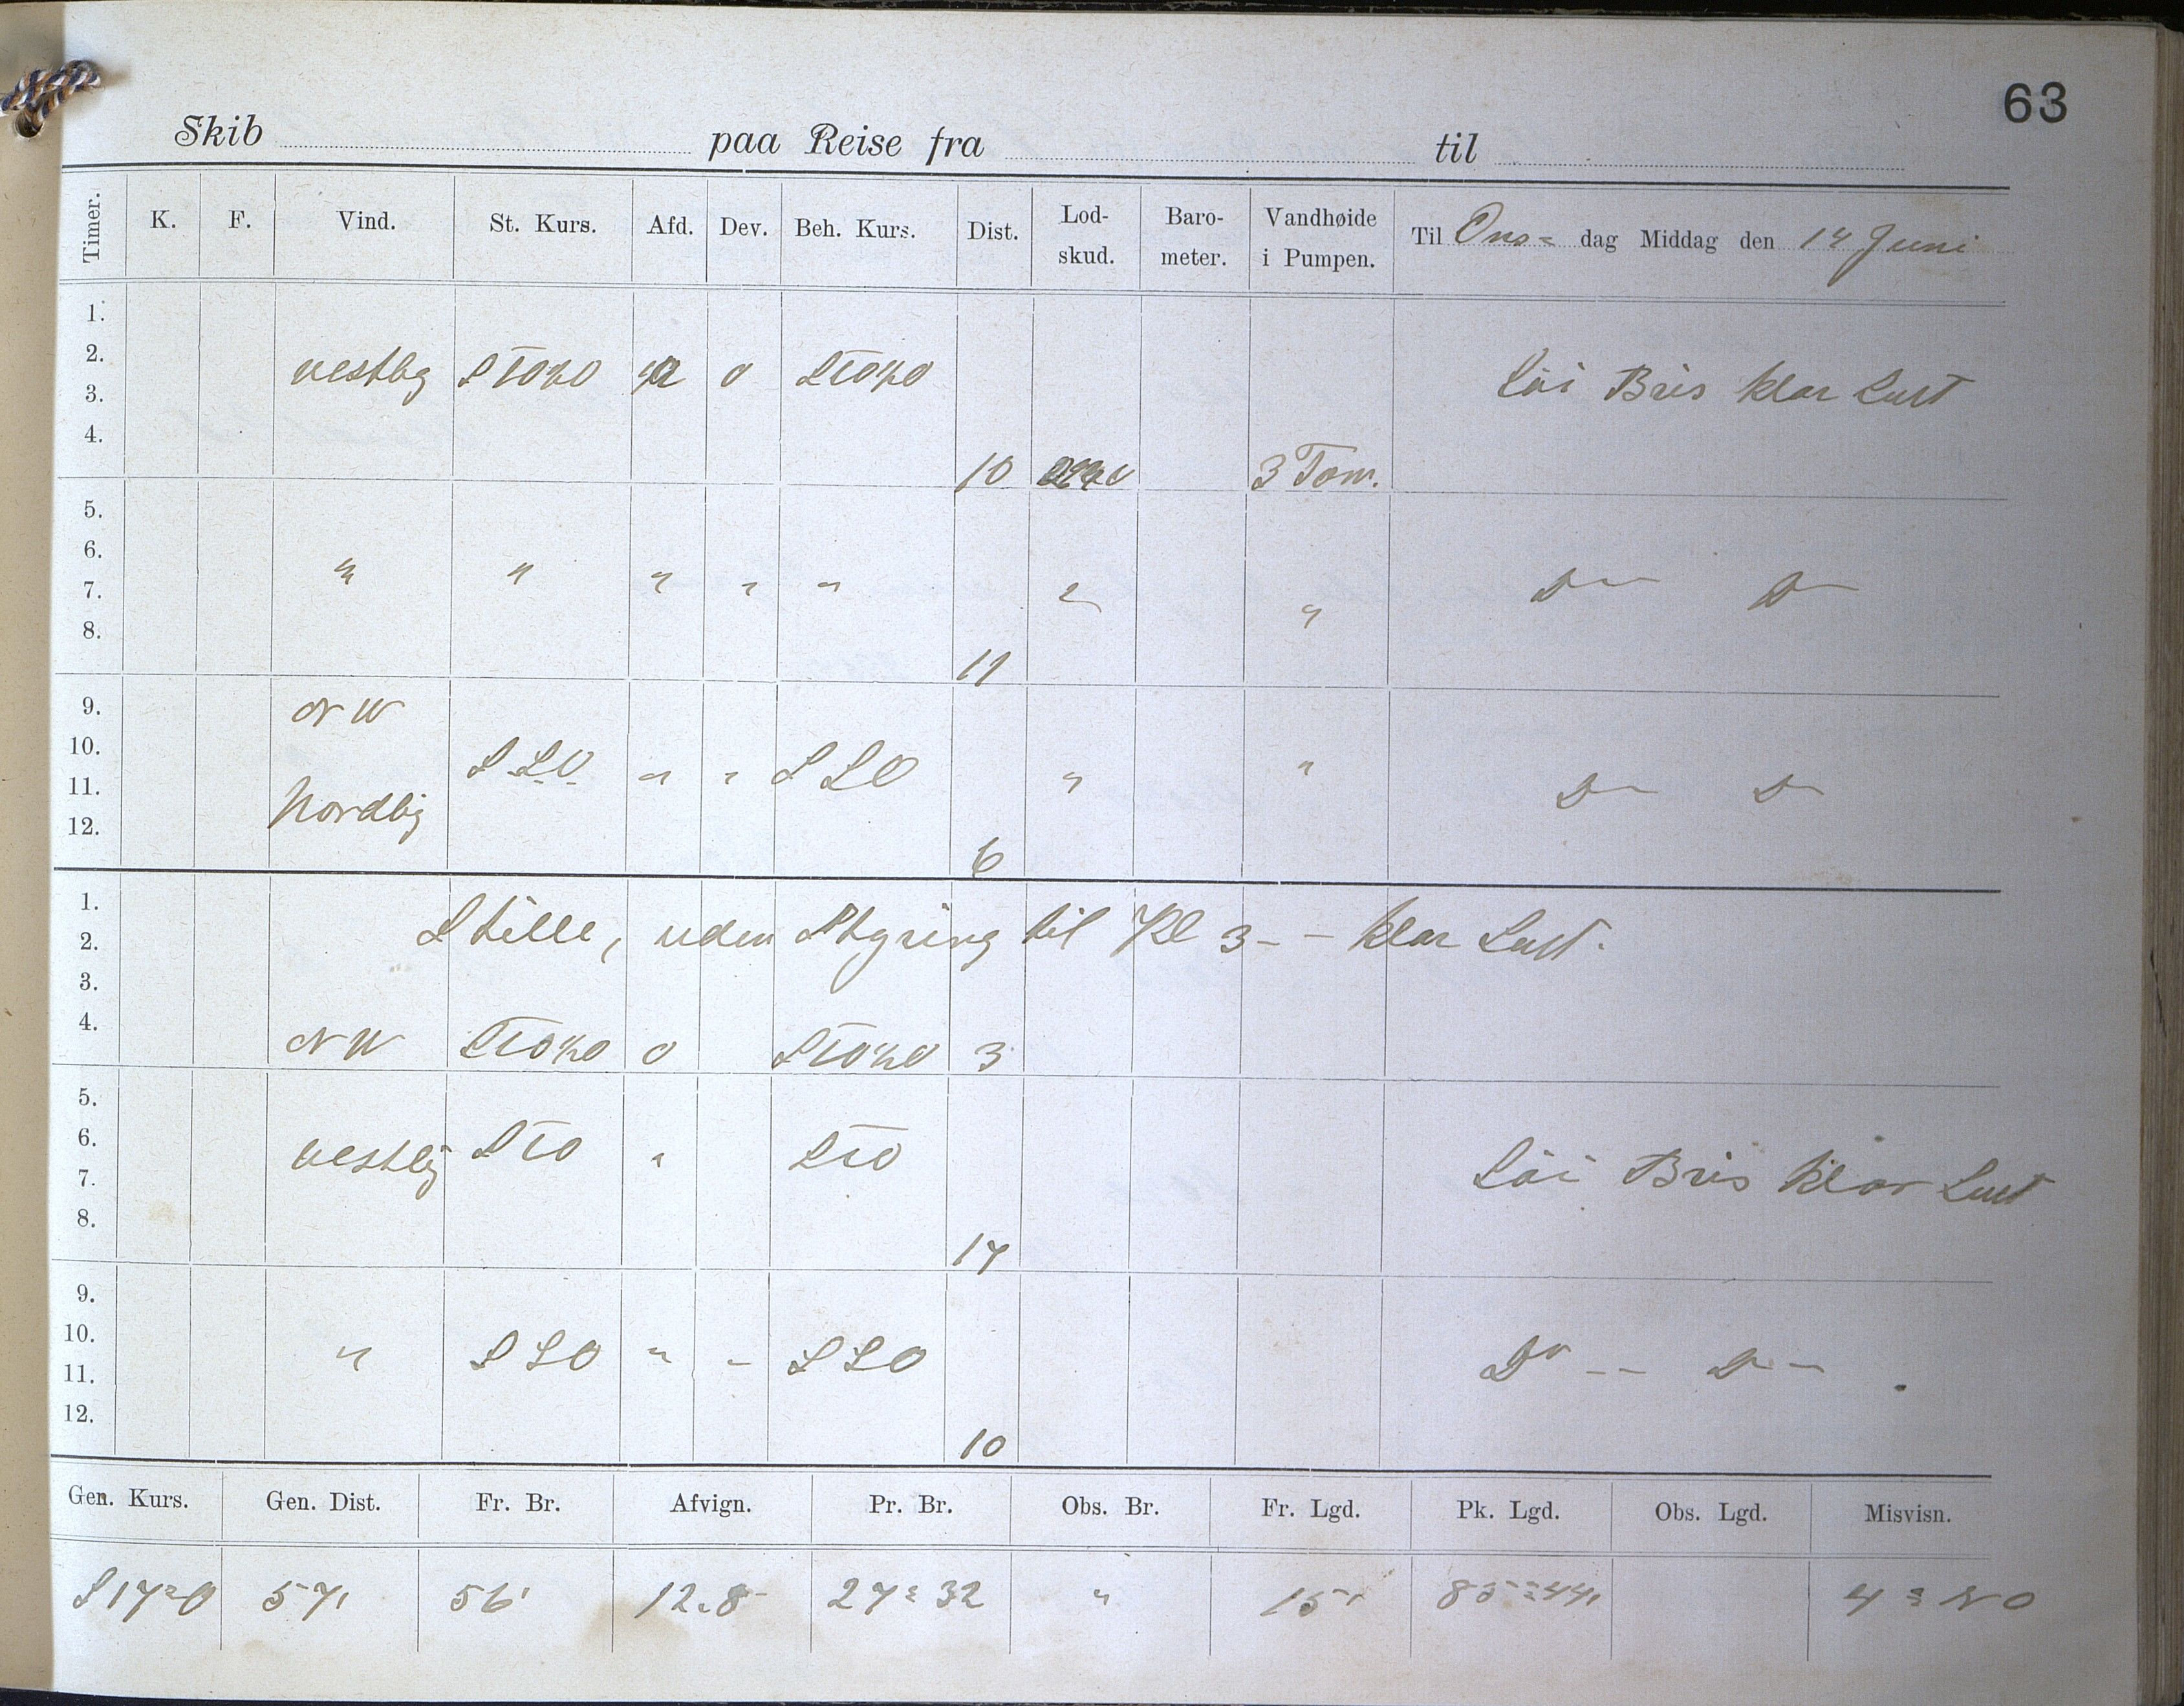 63
Skib paa Reise fra til
Timer. K. F. Vind. St. Kurs. Afd. Dev. Beh. Kurs. Dist. Lod-skud. Baro-meter. Vandhøide i Pumpen. Til Ons= dag Middag den 14 Juni
1.
2. vestlig StO½O 0 StO½O Löi Bris klar Luft
3.
4. 10 3 Tom.
5.
6. " " " " " " D— D—
7. "
8. 11
9. NW
10. SSO " " SSO " " D— D—
11. Nordlig
12. 6
1. Stille, uden Styring til Kl 3 - - klar Luft.
2.
3.
4. NW StO½O 0 StO½O 3
5.
6. vestlig StO " StO Löi Bris klar Luft
7.
8. 17
9.
10. " SSO " - SSO Do -- D —
11.
12. 10
Gen. Kurs. Gen. Dist. Fr. Br. Afvign. Pr. Br. Obs. Br. Fr. Lgd. Pk. Lgd. Obs. Lgd. Misvisn.
S17=O 57' 56' 12.8 27=32 " 15' 85=44' 4=NO